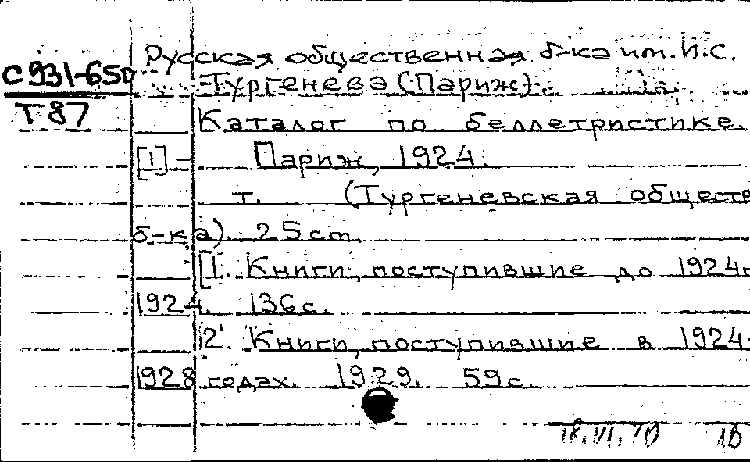 Русская общественная б-ка им. И.С.
С931-650
Тургенева (Париж).
Т87
Каталог по беллетристике.
[1] - Париж, 1924.
т. (Тургеневская обществ
б-ка). 25cm.
[1. Книги, поступившие до 1924г
1924. 136с.
2. Книги, поступившие в 1924-
1928 годах. 1929. 59с.
18.VI.70